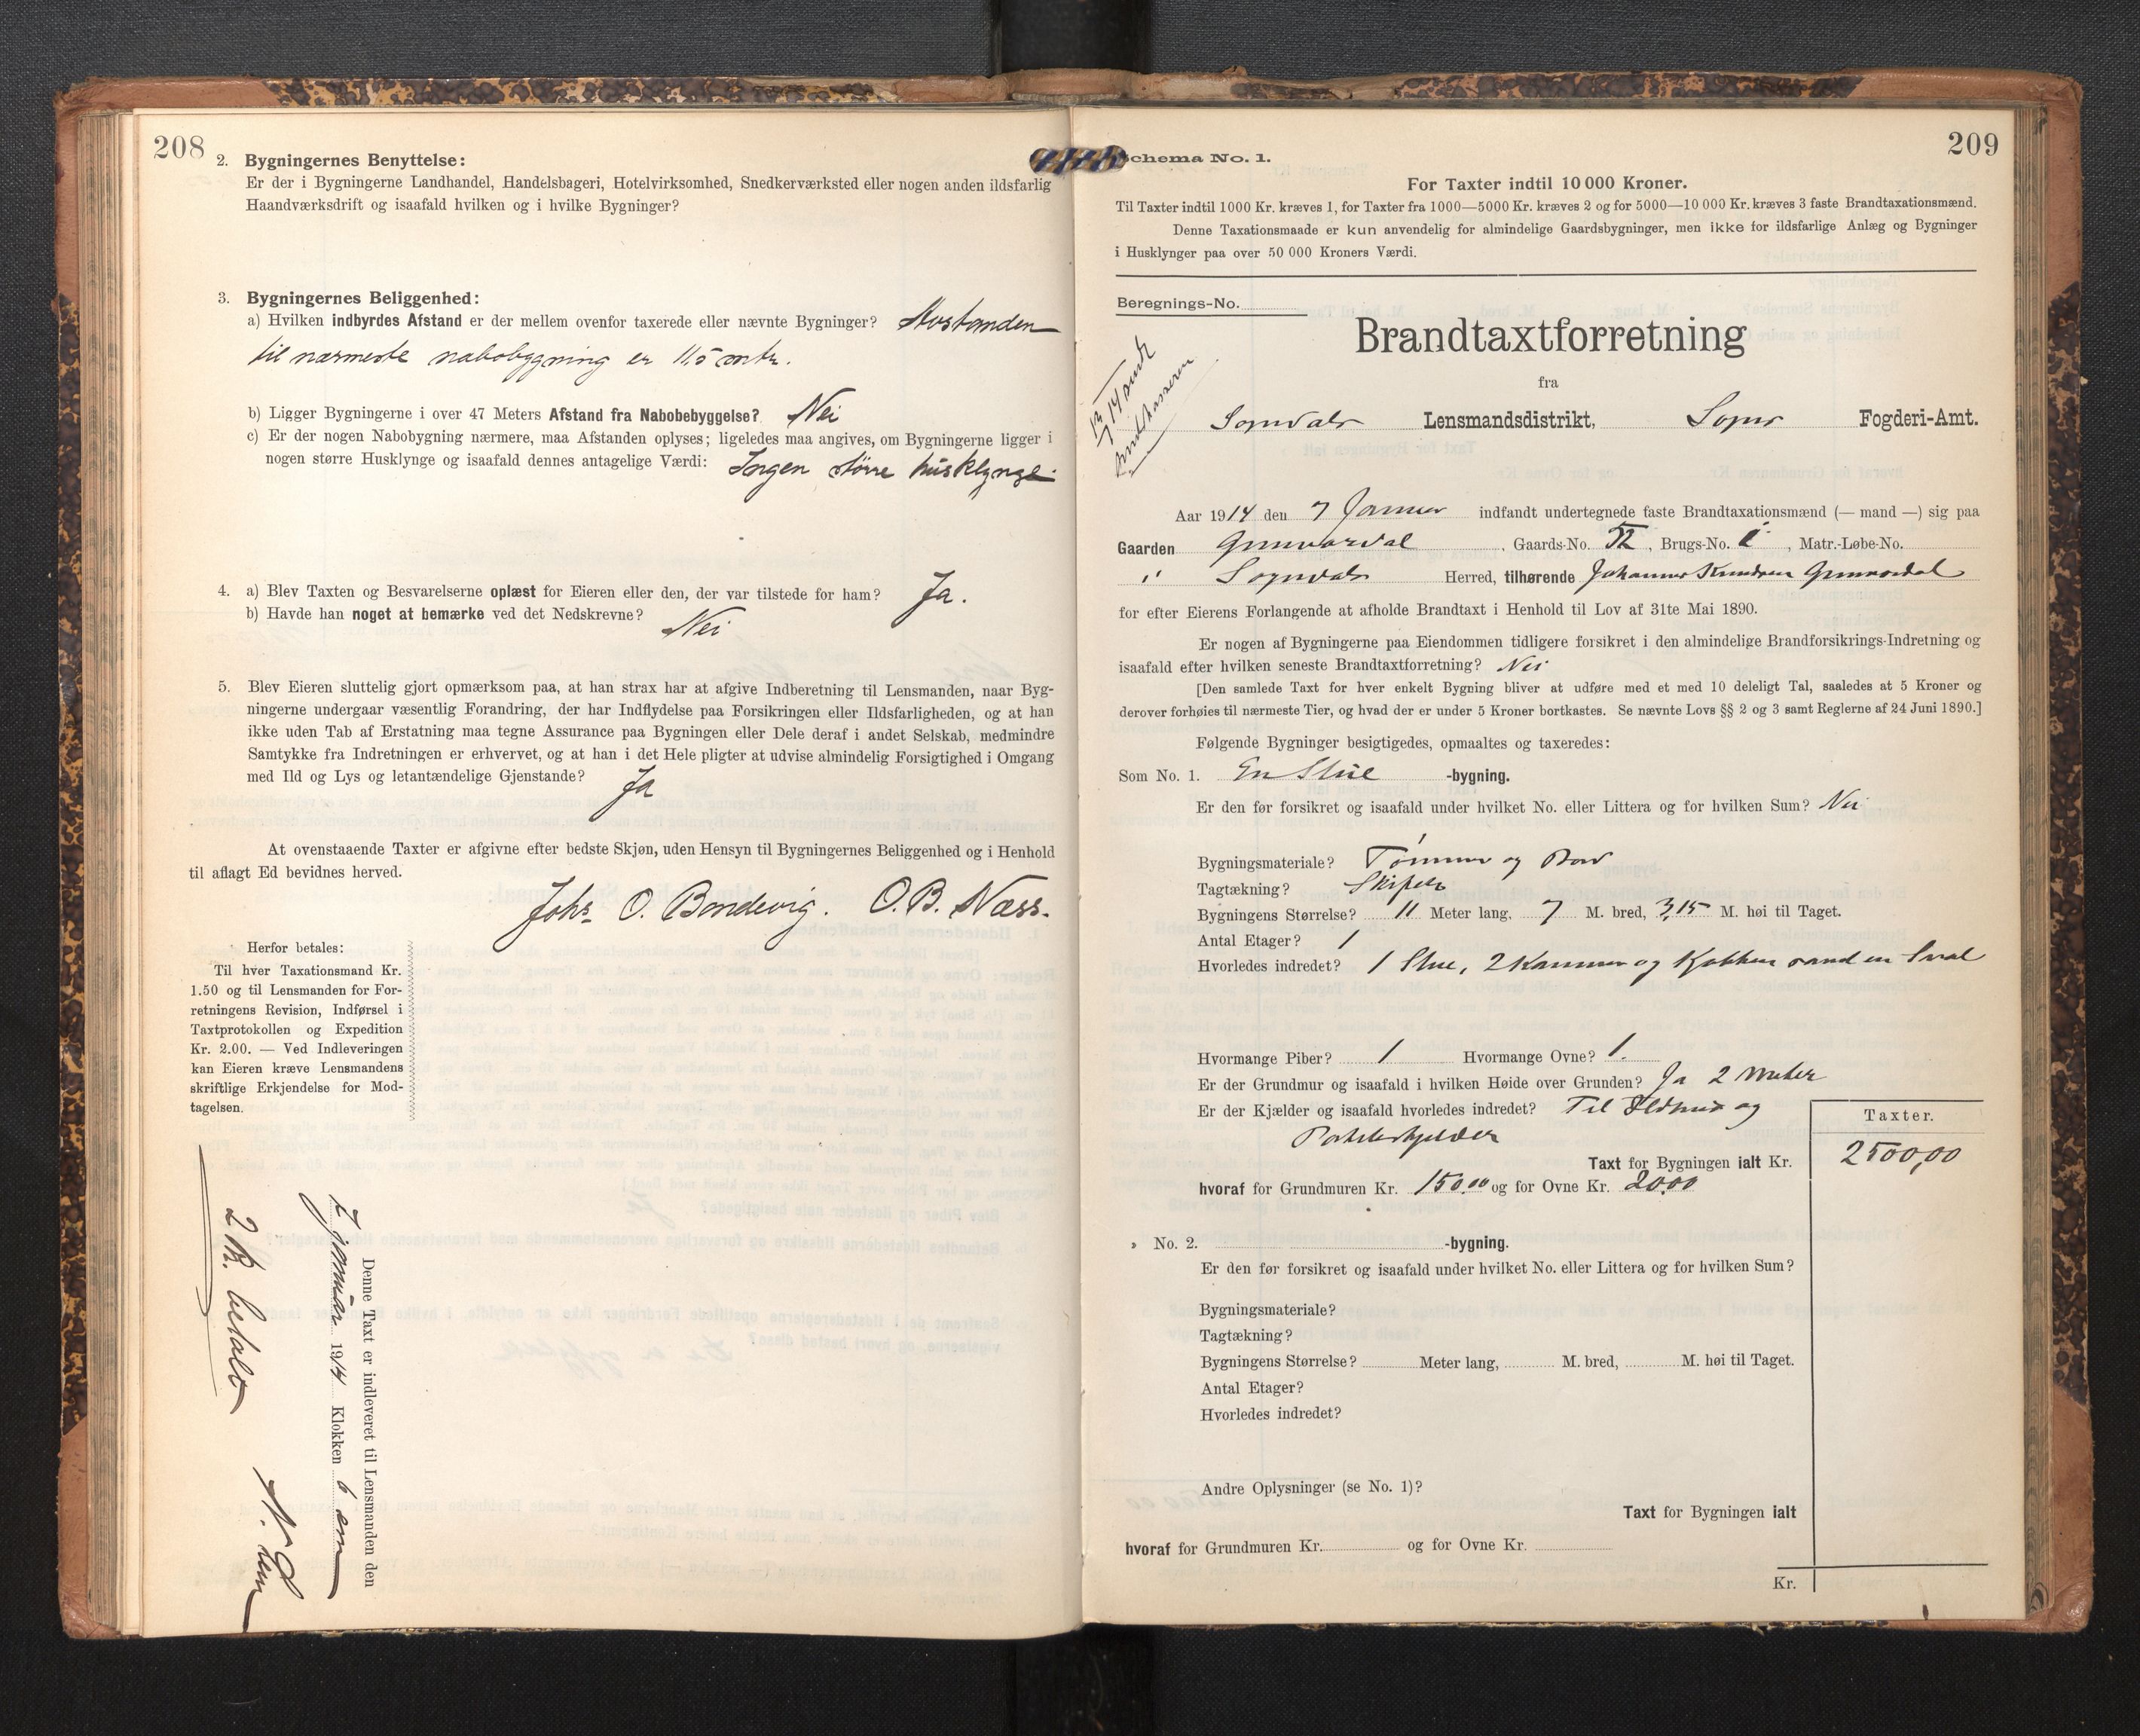 208
2. Bygningernes Benyttelse:
Er der i Bygningerne Landhandel, Handelsbageri, Hotelvirksomhed, Snedkerværksted eller nogen anden ildsfarlig
Haandværksdrift og isaafald hvilken og i hvilke Bygninger?
3. Bygningernes Beliggenhed:
a) Hvilken indbyrdes Afstand er der mellem ovenfor taxerede eller nævnte Bygninger? Avstanden
til nærmeste nabobyggning er 115 mtr.
b) Ligger Bygningerne i over 47 Meters Afstand fra Nabobebyggelse? Nei
c) Er der nogen Nabobygning nærmere, maa Afstanden oplyses; ligeledes maa angives, om Bygningerne ligger i
nogen større Husklynge og isaafald dennes antagelige Værdi: Ingen större husklynge
4. a) Blev Taxten og Besvarelserne oplæst for Eieren eller den, der var tilstede for ham? Ja.
b) Havde han noget at bemærke ved det Nedskrevne? Nei
5. Blev Eieren sluttelig gjort opmærksom paa, at han strax har at afgive Indberetning til Lensmanden, naar Byg-
ningerne undergaar væsentlig Forandring, der har Indflydelse paa Forsikringen eller Ildsfarligheden, og at han
ikke uden Tab af Erstatning maa tegne Assurance paa Bygningen eller Dele deraf i andet Selskab, medmindre
Samtykke fra Indretningen er erhvervet, og at han i det Hele pligter at udvise almindelig Forsigtighed i Omgang
med Ild og Lys og letantændelige Gjenstande? Ja
At ovenstaaende Taxter er afgivne efter bedste Skjøn, uden Hensyn til Bygningernes Beliggenhed og i Henhold
til aflagt Ed bevidnes herved.
Johs. O. Bondevig. O.B. Næss.
Herfor betales:
Til hver Taxationsmand Kr.
1.50 og til Lensmanden for For-
retningens Revision, Indførsel i
Taxtprotokollen og Expedition
Kr. 2.00. — Ved Indleveringen
kan Eieren kræve Lensmandens
skriftlige Erkjendelse for Mod-
tagelsen.
Denne Taxt er indleveret til Lensmanden den
7 januar 1914 Klokken 6 em
2 Kr. betalt
209
Schema No. 1.
For Taxter indtil 10 000 Kroner.
Til Taxter indtil 1000 Kr. kræves 1, for Taxter fra 1000—5000 Kr. kræves 2 og for 5000—10 000 Kr. kræves 3 faste Brandtaxationsmænd.
Denne Taxationsmaade er kun anvendelig for almindelige Gaardsbygninger, men ikke for ildsfarlige Anlæg og Bygninger
i Husklynger paa over 50 000 Kroners Værdi.
Beregnings-No.
Brandtaxtforretning
fra
Sogndals Lensmandsdistrikt, Sogns Fogderi-Amt.
Aar 1914 den 7 Januar indfandt undertegnede faste Brandtaxationsmænd (— mand —) sig paa
Gaarden Gunvordal, Gaards-No. 52, Brugs-No. 1, Matr.-Løbe-No.
i Sogndals Herred, tilhørende Johannes Knudsen Gunvordal
for efter Eierens Forlangende at afholde Brandtaxt i Henhold til Lov af 31te Mai 1890.
Er nogen af Bygningerne paa Eiendommen tidligere forsikret i den almindelige Brandforsikrings-Indretning og
isaafald efter hvilken seneste Brandtaxtforretning? Nei
[Den samlede Taxt for hver enkelt Bygning bliver at udføre med et med 10 deleligt Tal, saaledes at 5 Kroner og
derover forhøies til nærmeste Tier, og hvad der er under 5 Kroner bortkastes. Se nævnte Lovs §§ 2 og 3 samt Reglerne af 24 Juni 1890.]
Følgende Bygninger besigtigedes, opmaaltes og taxeredes:
Som No. 1. En Stue -bygning.
Er den før forsikret og isaafald under hvilket No. eller Littera og for hvilken Sum? Nei
Bygningsmateriale? Tømmer og Bord
Tagtækning? Skifer
Bygningens Størrelse? 11 Meter lang, 7 M. bred, 3,15 M. høi til Taget.
Antal Etager? 1
Hvorledes indredet? 1 Stue, 2 Kammer og Kjøkken samt en Sval
Hvormange Piber? 1 Hvormange Ovne? 1.
Er der Grundmur og isaafald i hvilken Høide over Grunden? Ja 2 Meter
Er der Kjælder og isaafald hvorledes indredet? Til Ildhus og
Potetkjelder
Taxter.
Taxt for Bygningen ialt Kr. 2500,00
hvoraf for Grundmuren Kr. 150.00 og for Ovne Kr. 20.00
» No. 2. -bygning.
Er den før forsikret og isaafald under hvilket No. eller Littera og for hvilken Sum?
Bygningsmateriale?
Tagtækning?
Bygningens Størrelse? Meter lang, M. bred, M. høi til Taget.
Antal Etager?
Hvorledes indredet?
Andre Oplysninger (se No. 1)?
Taxt for Bygningen ialt
hvoraf for Grundmuren Kr. og for Ovne Kr.
Kr.